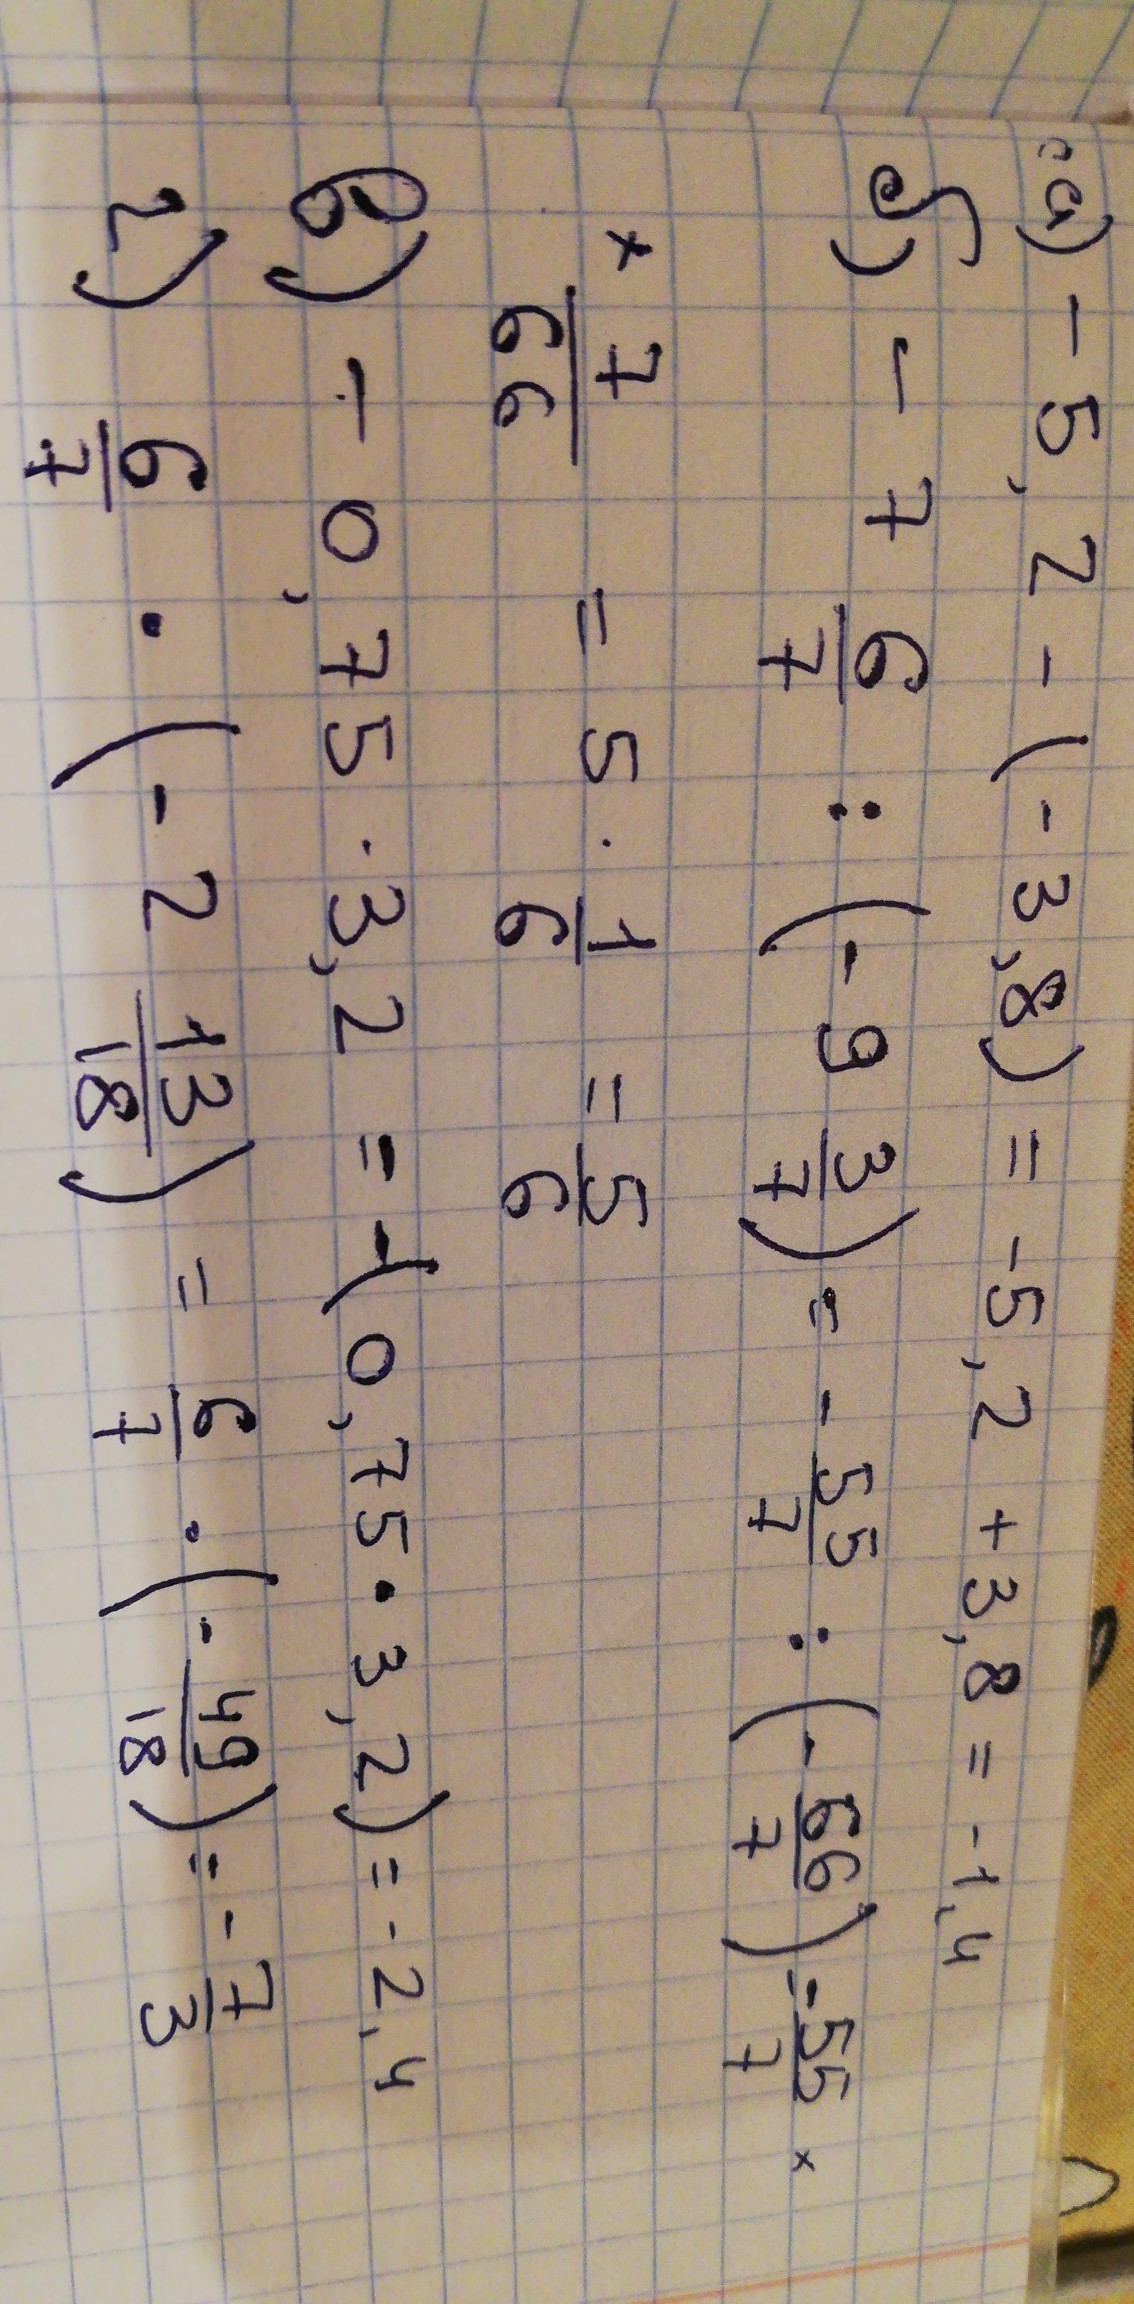 а) -5,2 - (-3,8) = -5,2 + 3,8 = -1,4
б) -7 6/7 : (-9 3/7) = -55/7 : (-66/7) = 55/7 ×
× 7/66 = 5 · 1/6 = 5/6
в) -0,75 · 3,2 = -(0,75 · 3,2) = -2,4
г) 6/7 · (-2 13/18) = 6/7 · (-49/18) = -7/3